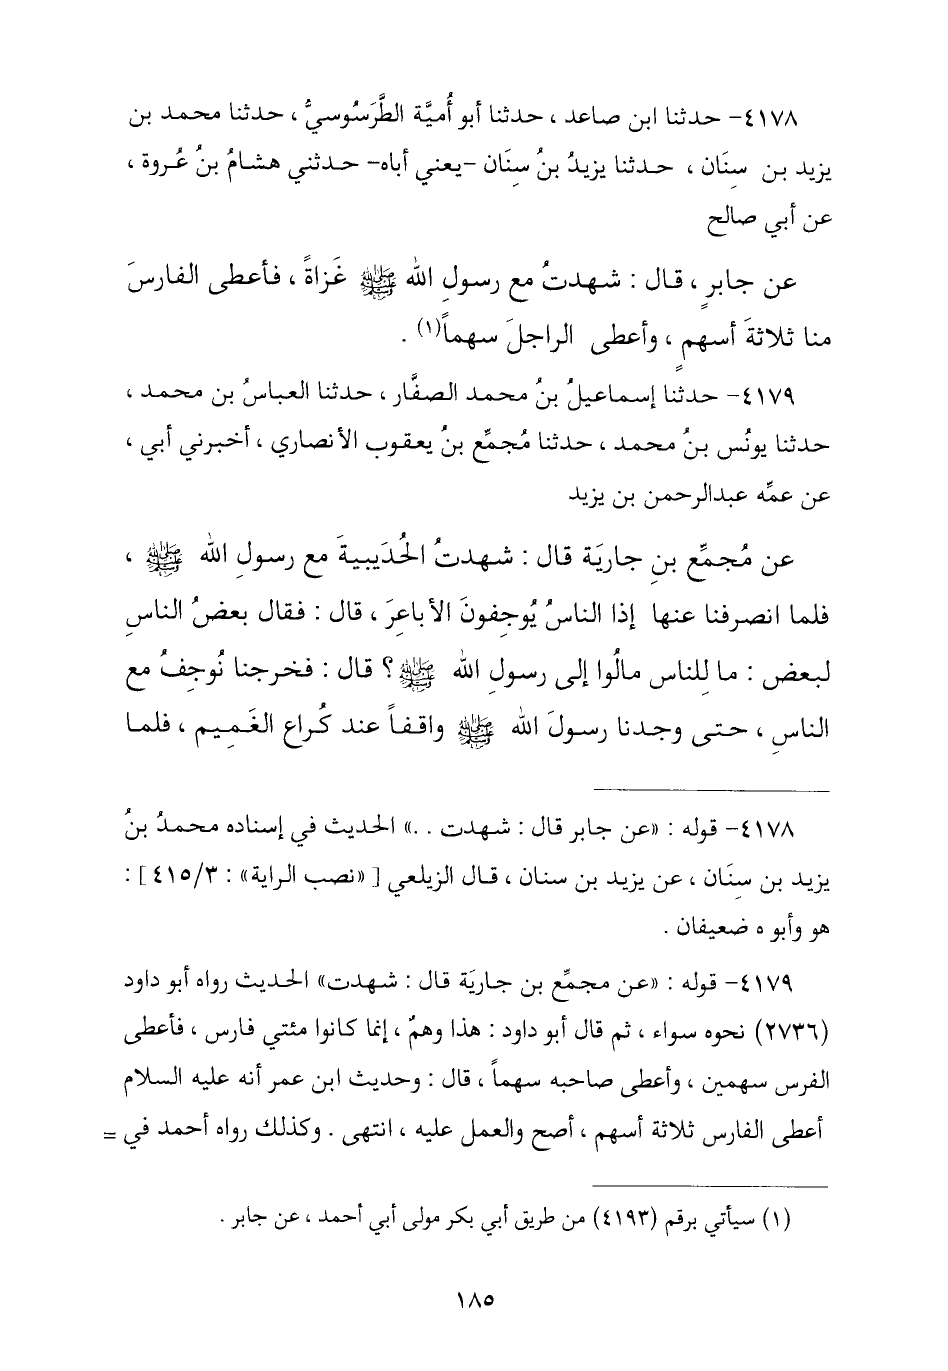 ٤١٧٨- حدثنا ابن صاعد ، حدثنا أبو أُميَّة الطَّرَسُوسيُّ ، حدثنا محمد بن
يزيد بن سِنَان ، حدثنا يزيدُ بنُ سِنَان -يعني أباه- حدثني هشامُ بنُ عُروة ،
عن أبي صالح
عن جابرٍ ، قال : شهدتُ مع رسولِ الله ﷺ غَزاةً ، فأعطى الفارسَ
منا ثلاثةَ أسهمٍ ، وأعطى الراجلَ سهماً(١) .
٤١٧٩- حدثنا إسماعيلُ بنُ محمد الصفَّار ، حدثنا العباسُ بن محمد ،
حدثنا يونُس بنُ محمد ، حدثنا مُجمِّع بنُ يعقوب الأنصاري ، أخبرني أبي ،
عن عمِّه عبدالرحمن بن يزيد
عن مُجمِّع بنِ جاريَة قال : شهدتُ الحُدَيبيةَ مع رسولِ الله ﷺ ،
فلما انصرفنا عنها إذا الناسُ يُوجِفونَ الأباعرَ ، قال : فقال بعضُ الناسِ
لبعض : ما لِلناس مالُوا إلى رسولِ الله ﷺ؟ قال : فخرجنا نُوجِفُ مع
الناسِ ، حتى وجدنا رسولَ الله ﷺ واقفاً عند كُراع الغَمِيم ، فلما
٤١٧٨- قوله : «عن جابر قال : شهدت . .» الحديث في إسناده محمدُ بنُ
يزيد بن سِنَان ، عن يزيد بن سنان ، قال الزيلعي [«نصب الراية» : ٤١٥/٣] :
هو وأبو ه ضعيفان .
٤١٧٩- قوله : «عن مجمِّع بن جاريَة قال : شهدت» الحديث رواه أبو داود
(٢٧٣٦) نحوه سواء ، ثم قال أبو داود : هذا وهمٌ ، إنما كانوا مئتي فارس ، فأعطى
الفرس سهمين ، وأعطى صاحبه سهماً ، قال : وحديث ابن عمر أنه عليه السلام
أعطى الفارس ثلاثة أسهم ، أصح والعمل عليه ، انتهى . وكذلك رواه أحمد في =
(١) سيأتي برقم (٤١٩٣) من طريق أبي بكر مولى أبي أحمد ، عن جابر .
١٨٥